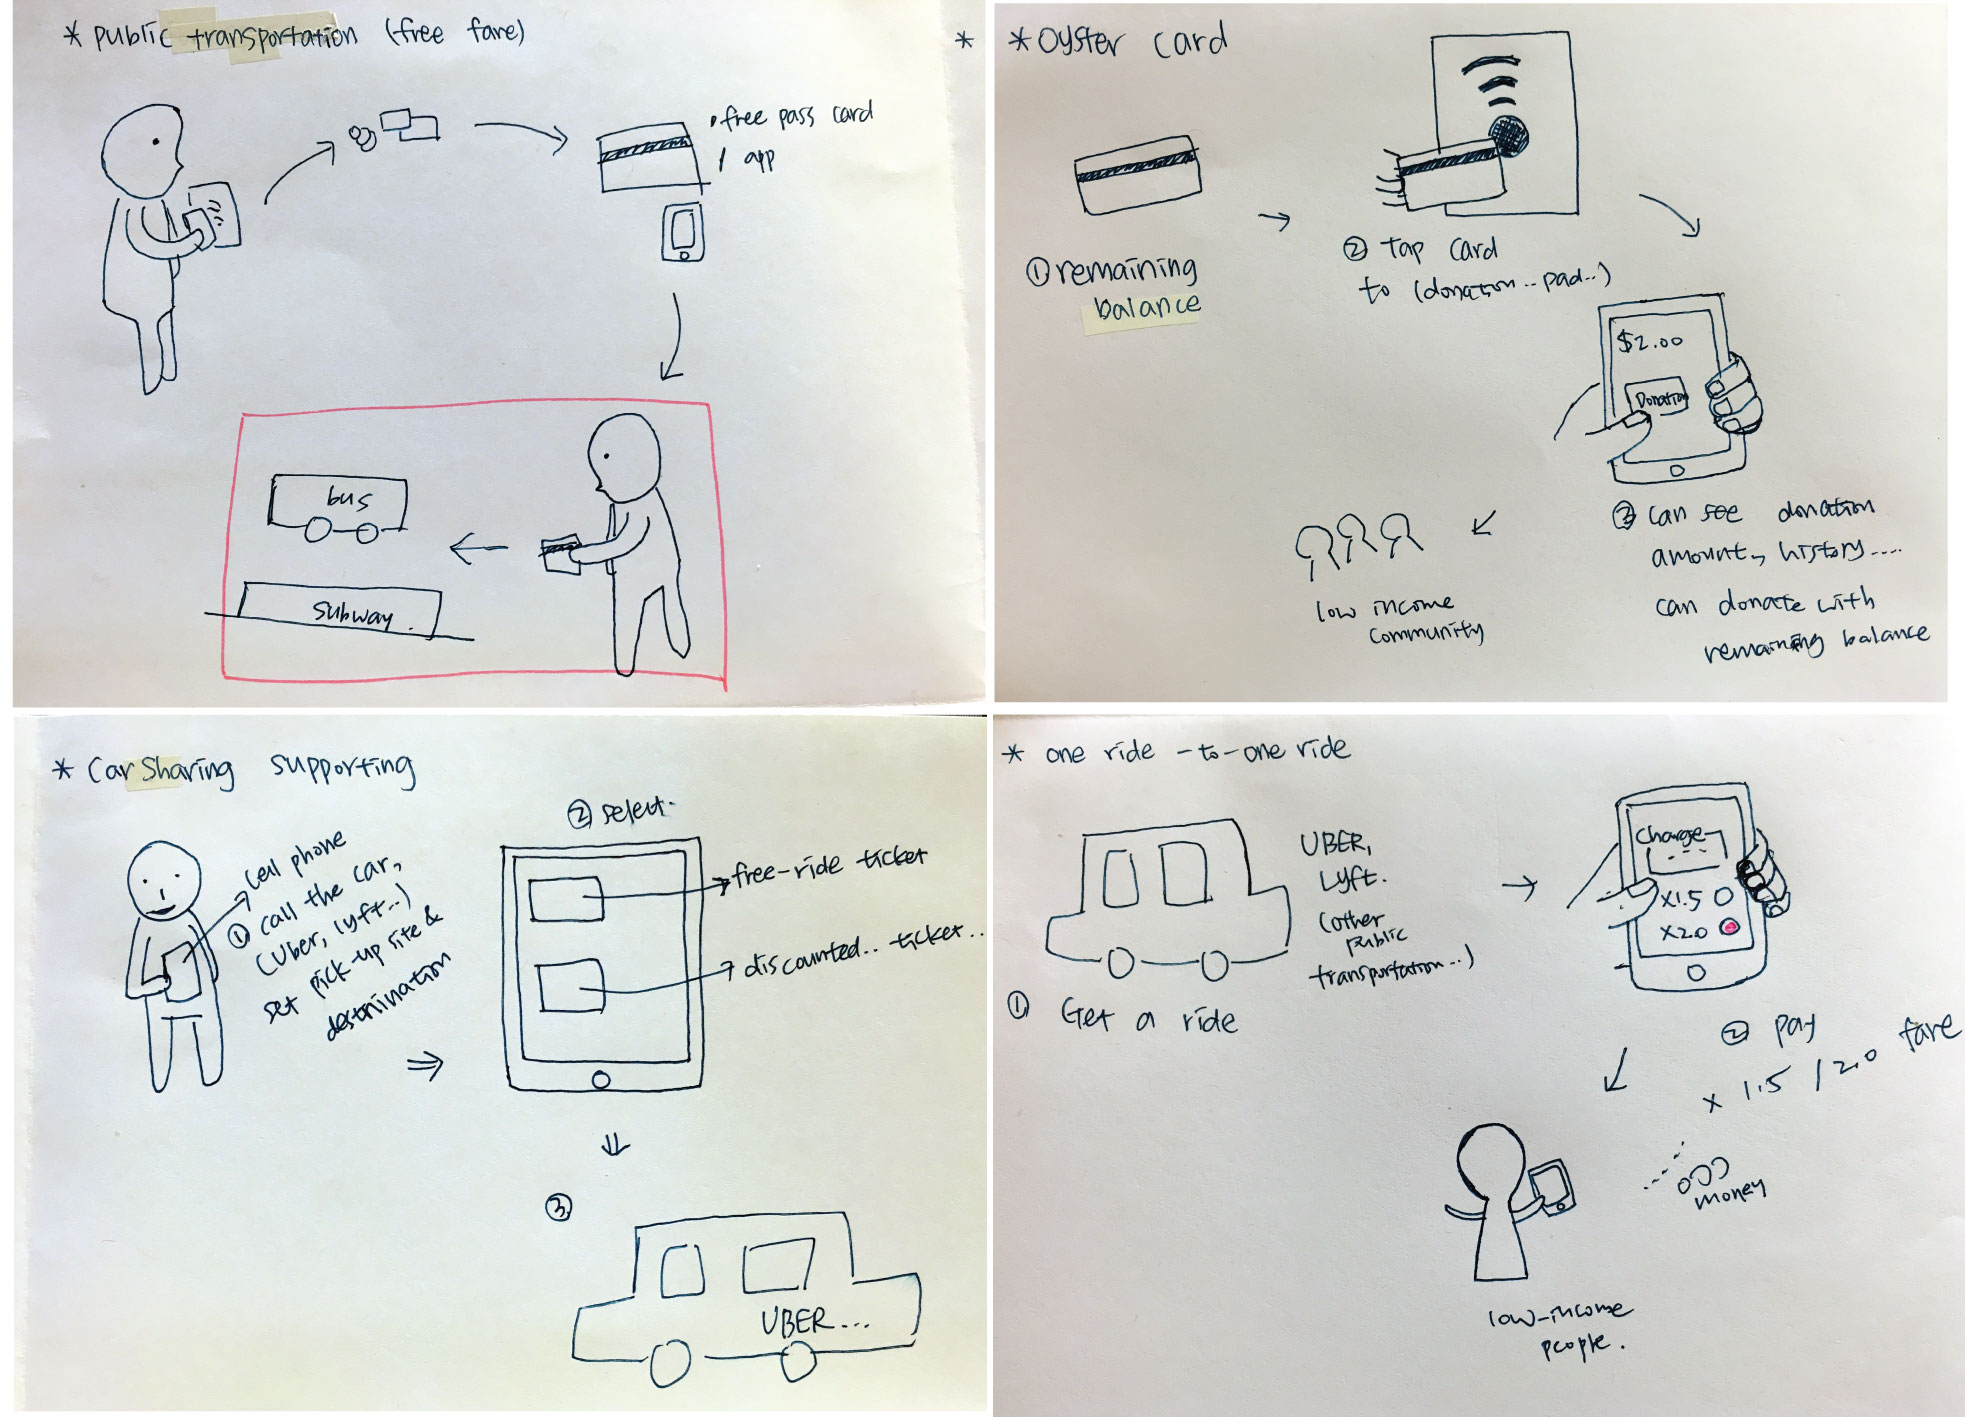 * public transportation (free fare)
• free pass card
/ app
bus
subway.
*
* Oyster card
① remaining
balance
② Tap card
to (donation.. pad..)
$2.00
Donation
③ can see donation
amount, history....
can donate with
remaining balance
low income
community
* Car Sharing supporting
cell phone
① call the car,
(Uber, lyft..)
set pick-up site &
destnination
② select.
free-ride ticket
discounted.. ticket..
③
UBER...
* one ride -to- one ride
UBER,
Lyft.
(other
public
transportation..)
① Get a ride
Charge
x1.5
x2.0
② pay
x 1.5 / 2.0 fare
money
low-income
people.